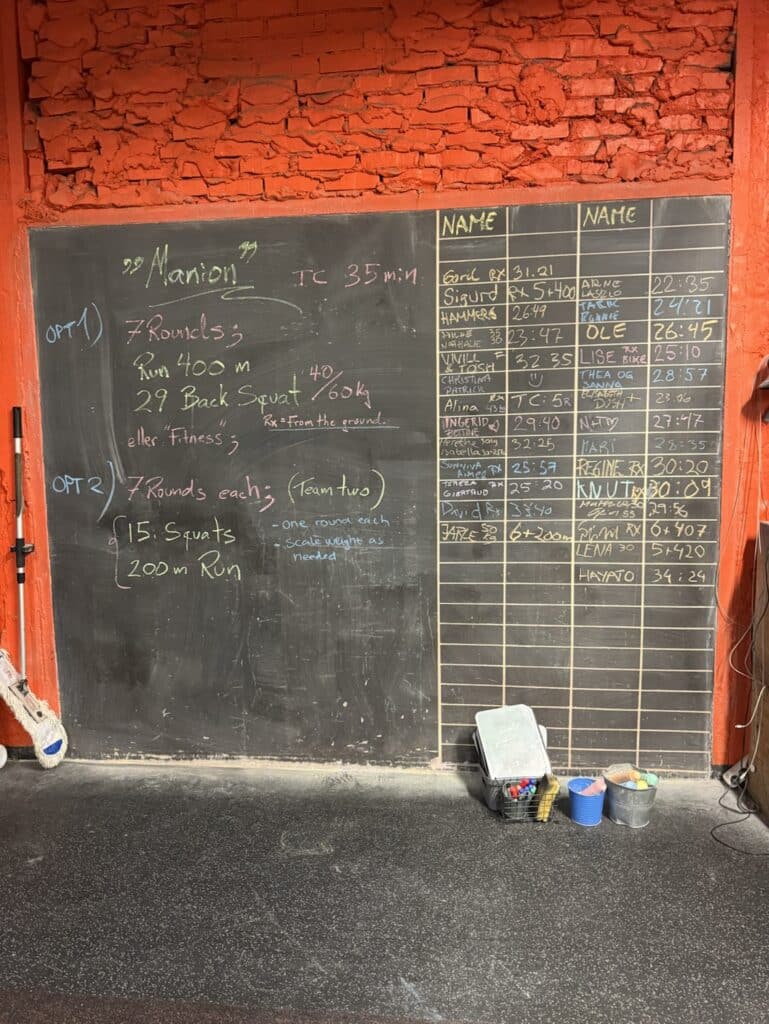 "Manion"
TC 35 min
OPT 1)
7 Rounds;
Run 400 m
29 Back Squat 40/60kg
Rx = From the ground.
eller "Fitness";
OPT 2)
7 Rounds each; (Team two)
15. Squats
200 m Run
- one round each
- Scale weight as
needed
NAME
RX 31.21
Sigurd RX 5+400
HAMMER 26:49
23:47
& TOSH 32 35
CHRISTINA
PATRICK
Alina TC: 5R
INGERID 29:40
32:25
SUNNIVA
RX 25:57
25:20
David RX
JARLE 6+200m
NAME
ARNE
LASZLO 22:35
24:21
OLE 26:45
LISE RX
BIKE 25:10
THEA OG
SANNA 28:57
ELISABETH
23:06
27:47
MARI 28:35
REGINE RX 30:20
KNUT RX 30:09
29:56
RX 6+407
LENA 30 5+420
HAYATO 34:24